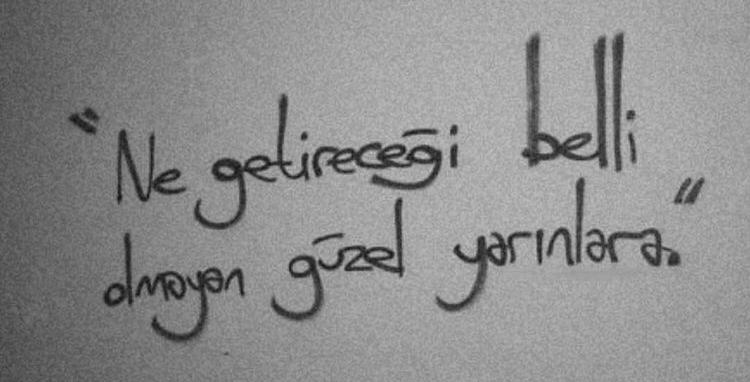 "Ne getireceği belli
olmayan güzel yarınlara."